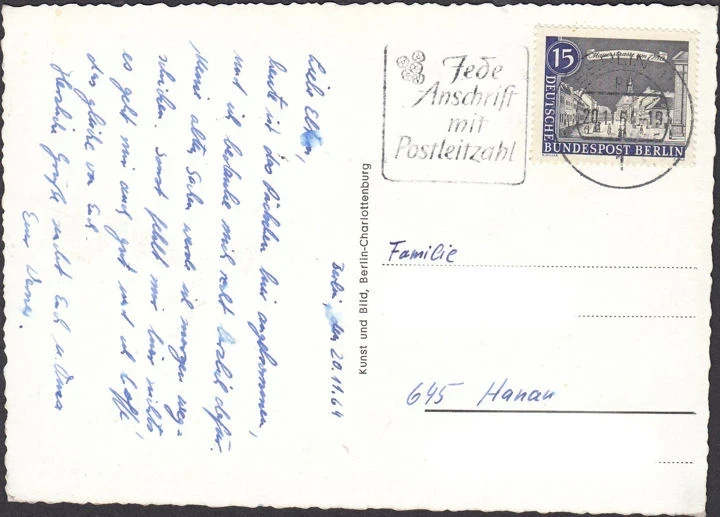 Berlin, den 20.11.64
Liebe Eltern,
heute ist das Päckchen hier angekommen,
und ich bedanke mich recht herzlich dafür.
Meine alten Sachen werde ich morgen weg=
schicken. Sonst fehlt mir hier nichts
es geht mir auch gut und ich hoffe
das gleiche von Euch.
Herzliche Grüße sendet Euch u. Oma
Euer
Kunst und Bild, Berlin-Charlottenburg
Jede
Anschrift
mit
Postleitzahl
15
DEUTSCHE
BUNDESPOST BERLIN
20.11.64-19
1
Familie
645 Hanau